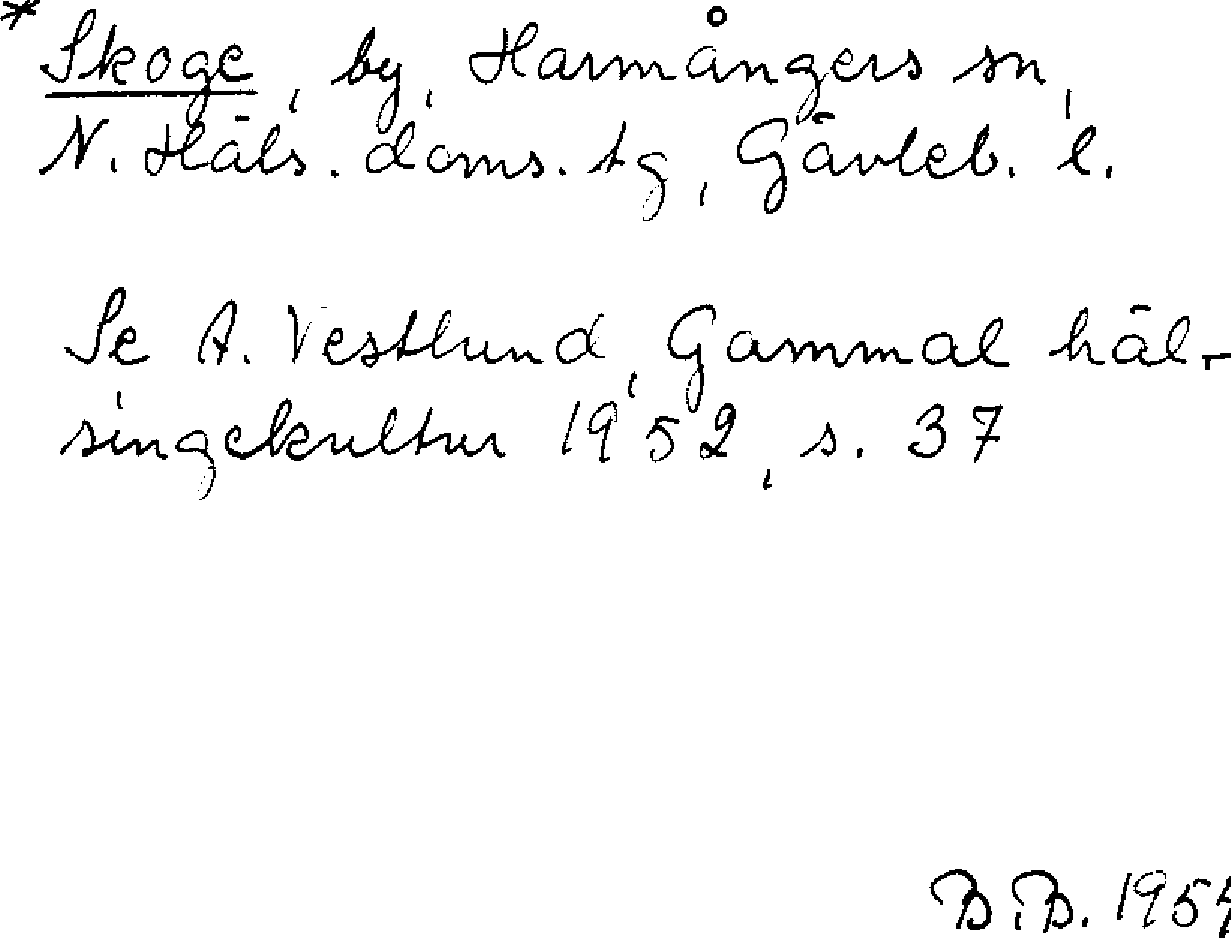 * Skoge, by, Harmångers sn,
N. Häls. doms. tg, Gävleb. l.
Se A. Vestlund, Gammal häl-
singekultur 1952, s. 37
B.B. 1954